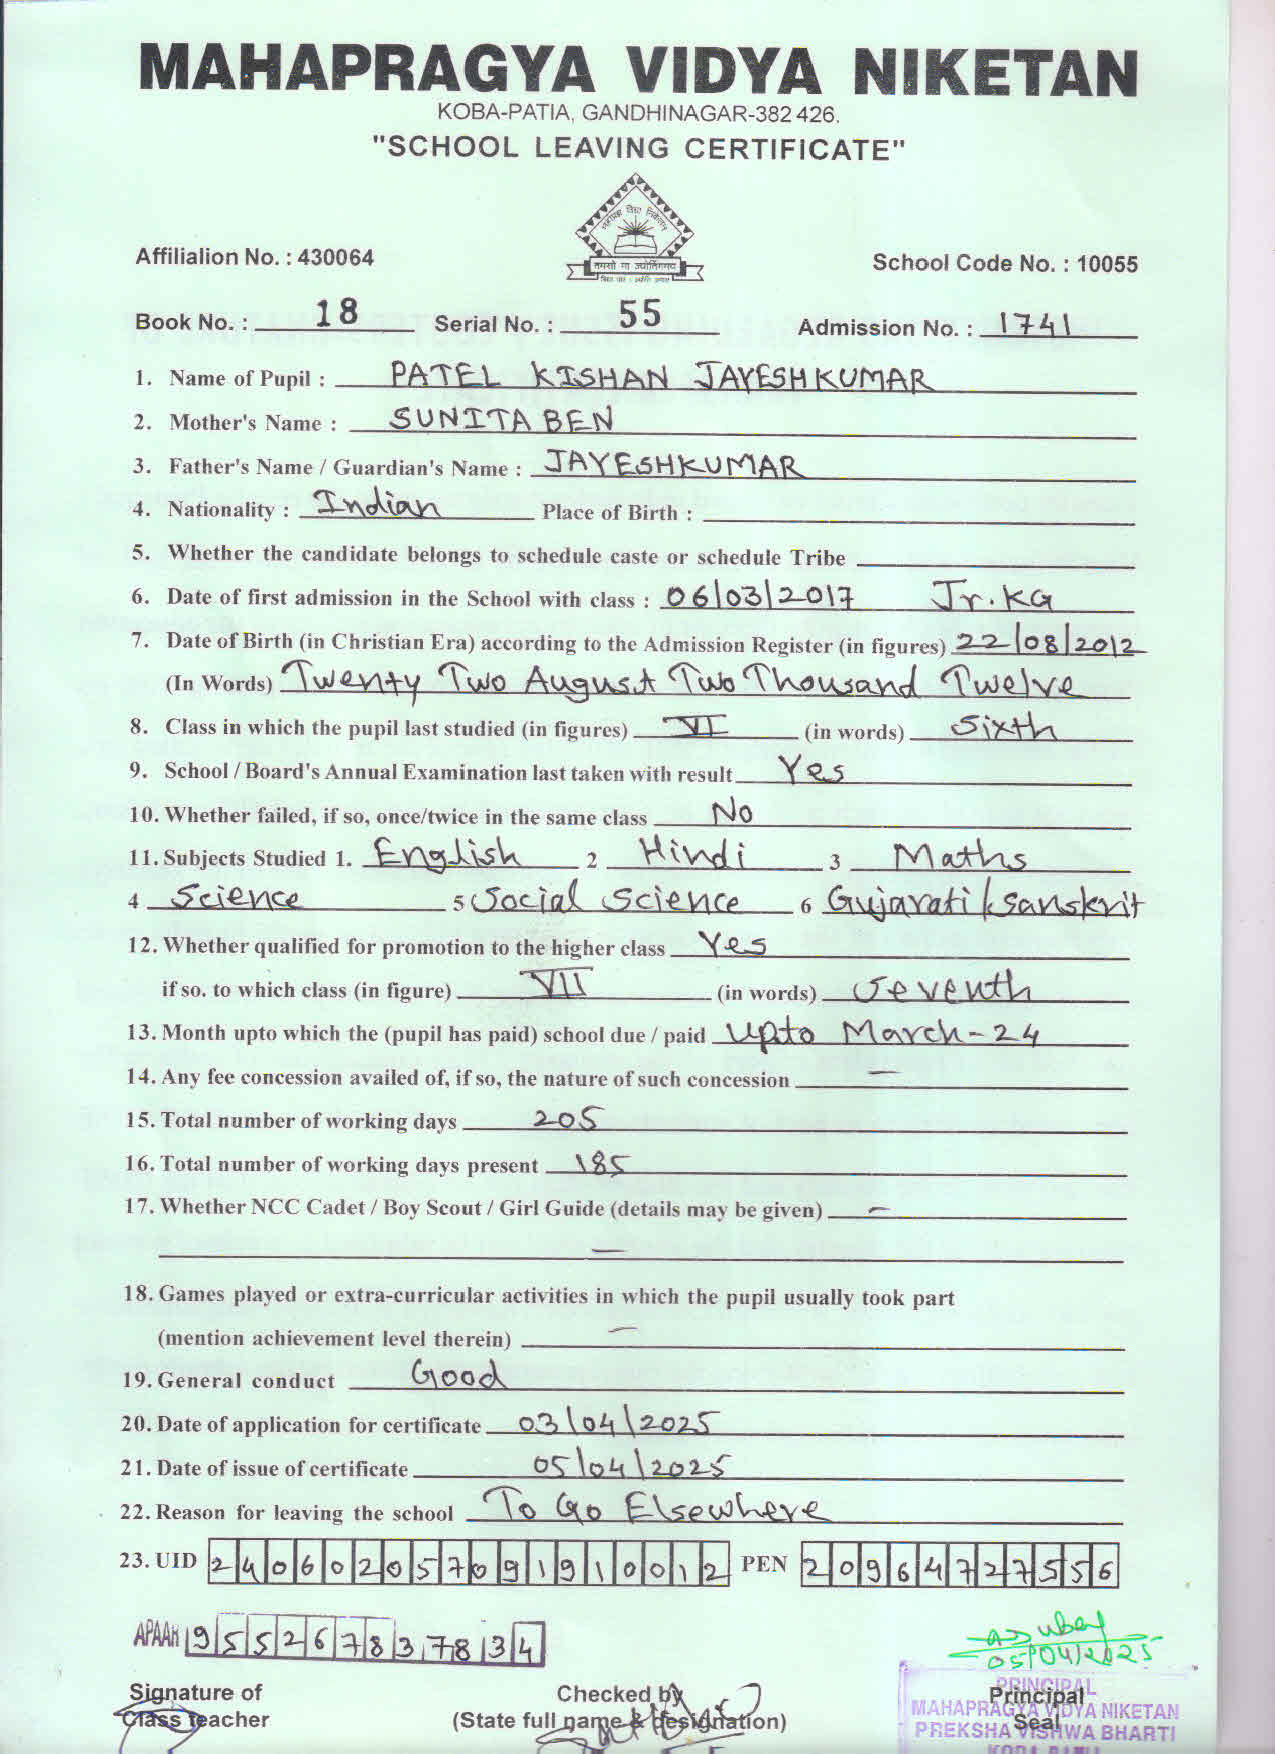 MAHAPRAGYA VIDYA NIKETAN
KOBA-PATIA, GANDHINAGAR-382 426.
"SCHOOL LEAVING CERTIFICATE"
महाप्रज्ञ विद्या निकेतन
तमसो मा ज्योतिर्गमय
Affilialion No. : 430064
School Code No. : 10055
Book No. : 18 Serial No. : 55 Admission No. : 1741
1. Name of Pupil : PATEL KISHAN JAYESHKUMAR
2. Mother's Name : SUNITABEN
3. Father's Name / Guardian's Name : JAYESHKUMAR
4. Nationality : Indian Place of Birth :
5. Whether the candidate belongs to schedule caste or schedule Tribe
6. Date of first admission in the School with class : 06/03/2017 Jr.KG
7. Date of Birth (in Christian Era) according to the Admission Register (in figures) 22/08/2012
(In Words) Twenty Two August Two Thousand Twelve
8. Class in which the pupil last studied (in figures) VI (in words) Sixth
9. School / Board's Annual Examination last taken with result Yes
10. Whether failed, if so, once/twice in the same class No
11. Subjects Studied 1. English 2 Hindi 3 Maths
4 Science 5 Social Science 6 Gujarati/Sanskrit
12. Whether qualified for promotion to the higher class Yes
if so. to which class (in figure) VII (in words) Seventh
13. Month upto which the (pupil has paid) school due / paid Upto March-24
14. Any fee concession availed of, if so, the nature of such concession —
15. Total number of working days 205
16. Total number of working days present 185
17. Whether NCC Cadet / Boy Scout / Girl Guide (details may be given) —
—
18. Games played or extra-curricular activities in which the pupil usually took part
(mention achievement level therein) —
19. General conduct Good
20. Date of application for certificate 03/04/2025
21. Date of issue of certificate 05/04/2025
22. Reason for leaving the school To Go Elsewhere
23. UID 240602057091910012 PEN 20964727556
APAAR 955267837834
05/04/2025
Signature of
Class teacher
Checked by
(State full name & designation)
Principal
Seal
PRINCIPAL
MAHAPRAGYA VIDYA NIKETAN
PREKSHA VISHWA BHARTI